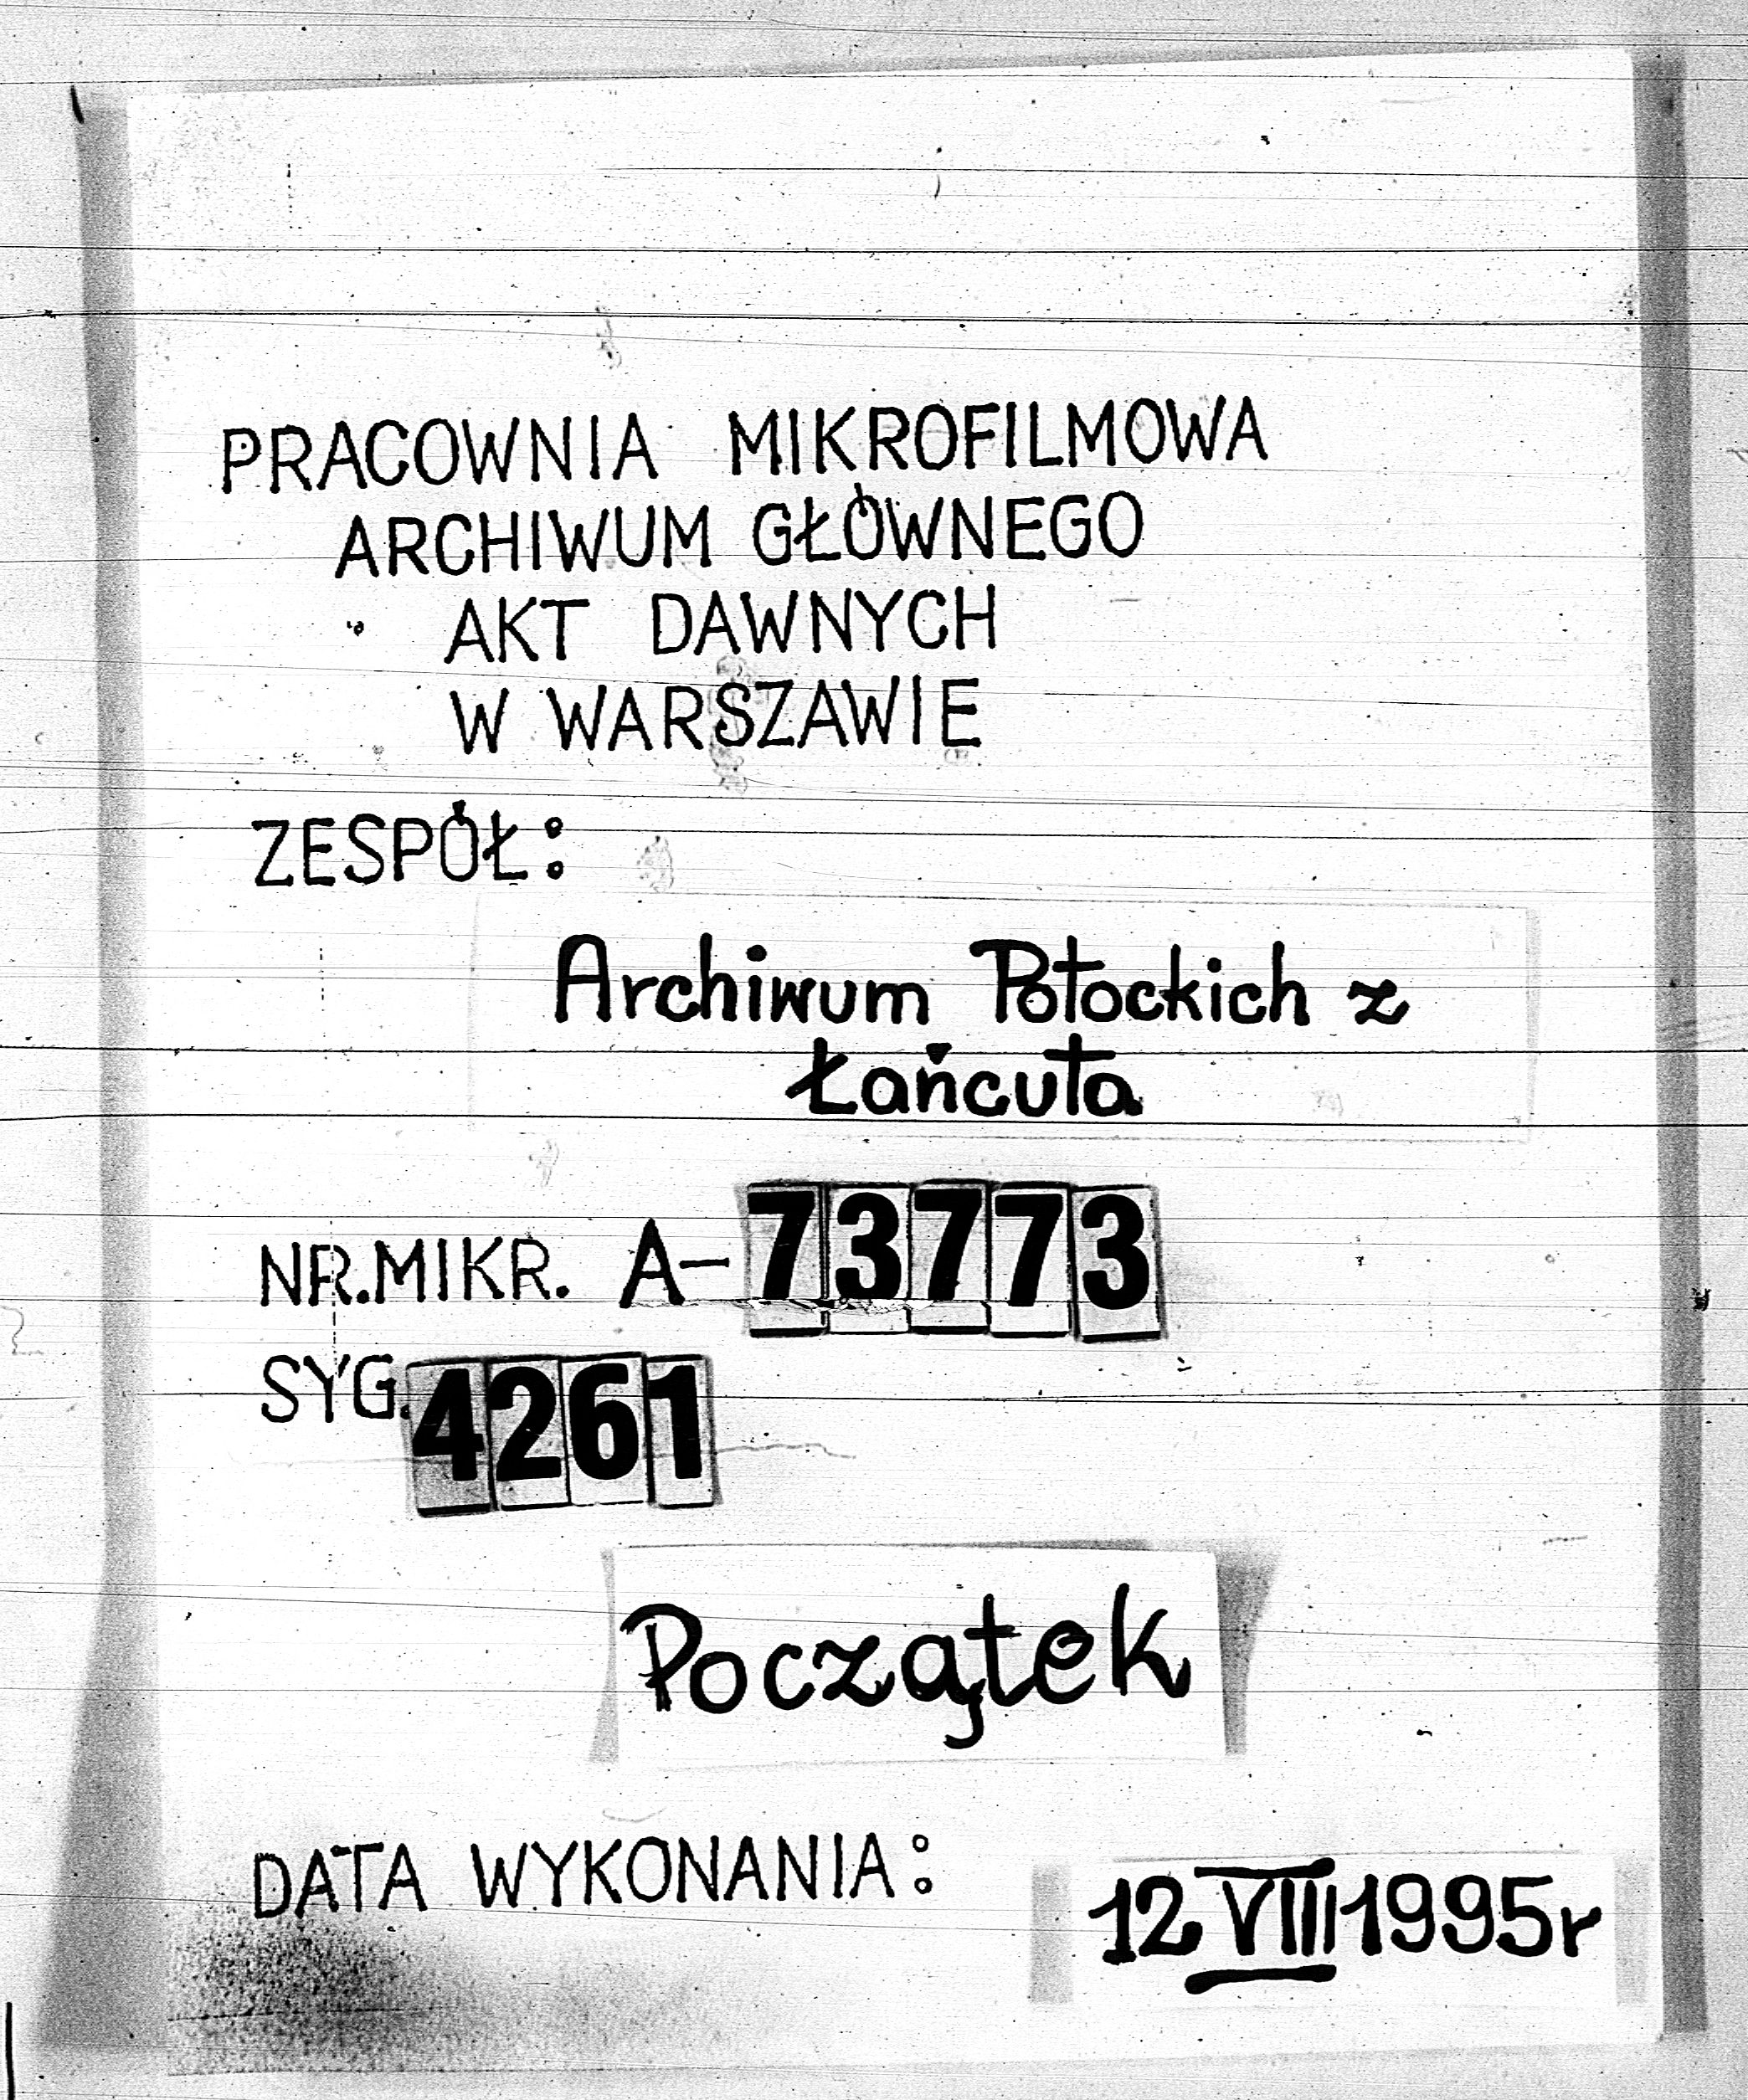 PRACOWNIA MIKROFILMOWA
ARCHIWUM GŁÓWNEGO
AKT DAWNYCH
W WARSZAWIE
ZESPÓŁ:
Archiwum Potockich z
Łańcuta
NR.MIKR. A-73773
SYG.4261
Początek
DATA WYKONANIA:
12 VIII 1995r